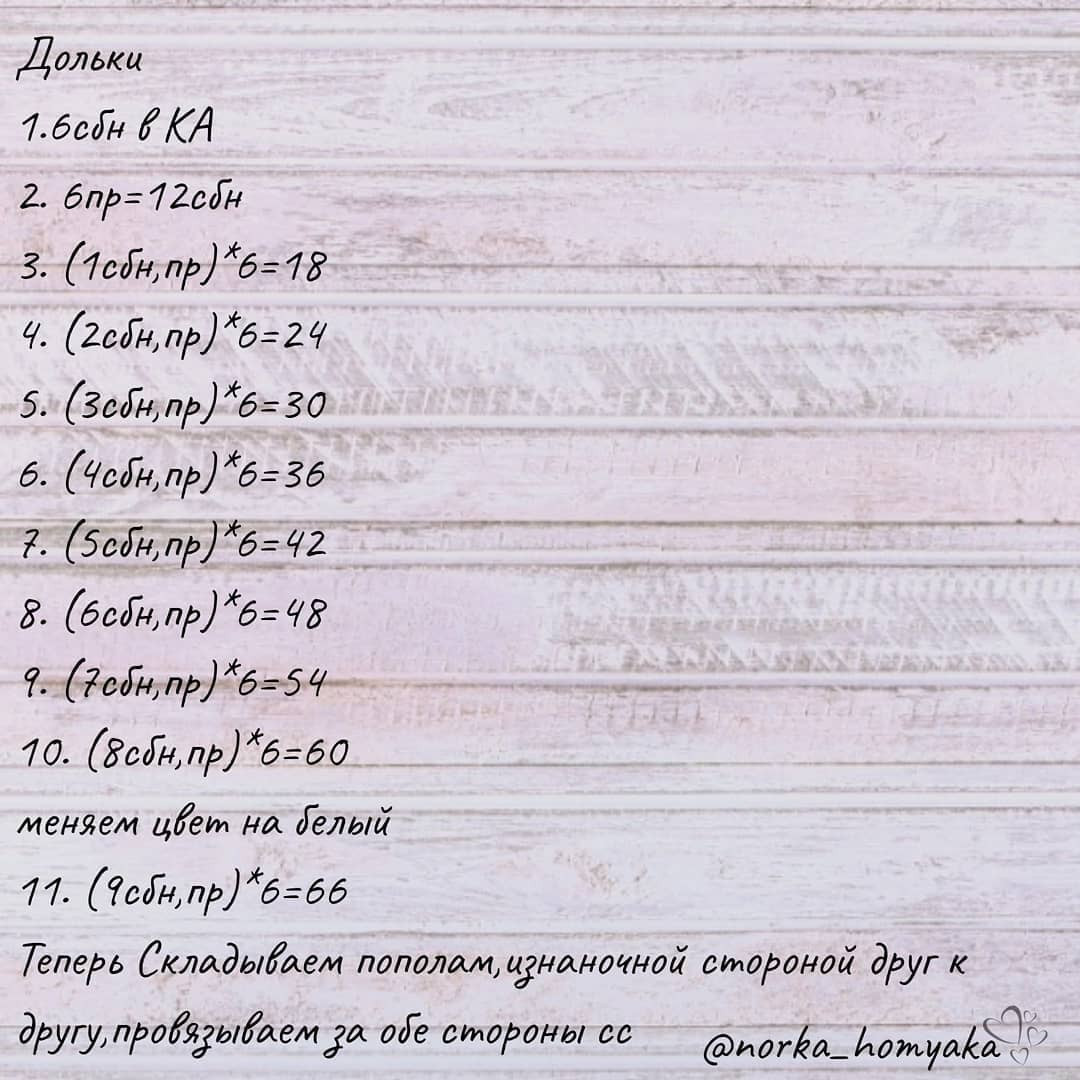 Дольки
1.6сбн в КА
2. 6пр=12сбн
3. (1сбн,пр)*6=18
4. (2сбн,пр)*6=24
5. (3сбн,пр)*6=30
6. (4сбн,пр)*6=36
7. (5сбн,пр)*6=42
8. (6сбн,пр)*6=48
9. (7сбн,пр)*6=54
10. (8сбн,пр)*6=60
меняем цвет на белый
11. (9сбн,пр)*6=66
Теперь Складываем пополам,изнаночной стороной друг к
другу,провязываем за обе стороны сс
@norka_homyaka